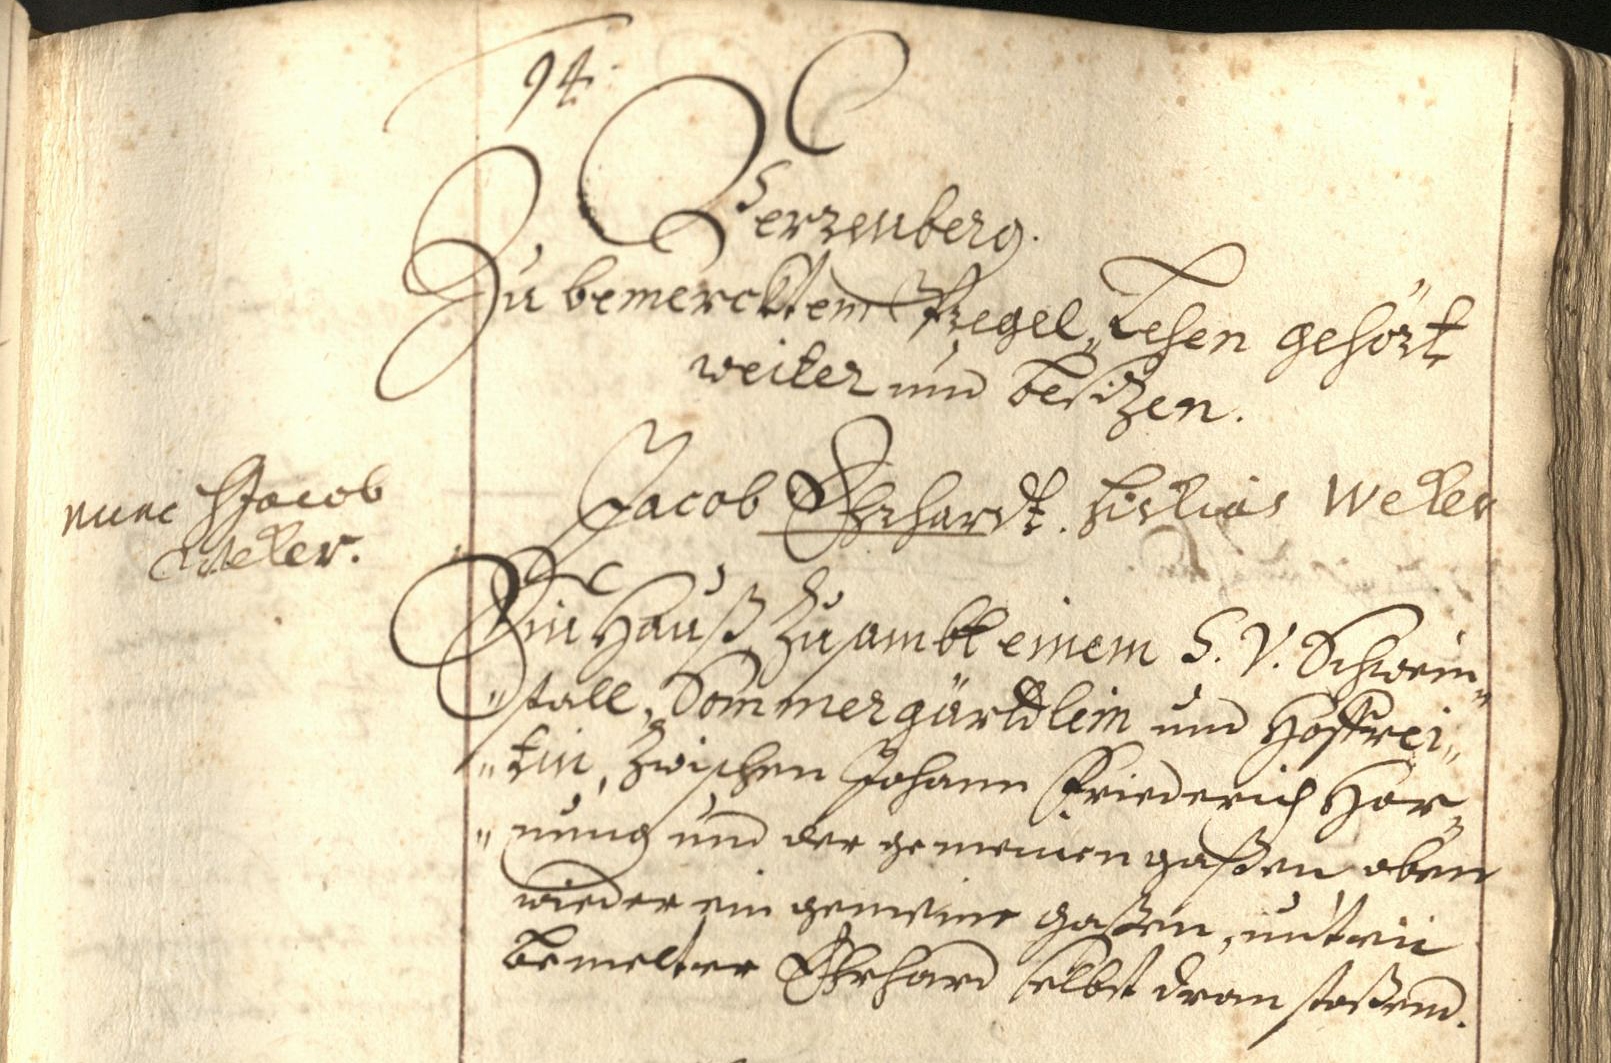 94.
Herrenberg.
Zu bemercktem Kegel, Lehen gehört
weiter und besitzen.
Jacob Ehrhardt. Weker
nunc Jacob
Weker.
Ein Hauß, Zusambt einem S. V. Schwein„
„stall, Sommergärtdlein und Hoffrei„
„tin, zwischen Johann Friederich Hor„
„nung und der gemeinen gaßen oben
wieder ein gemeine gaßen, unten
bemelter Ehrhard selbst dran stoßend.